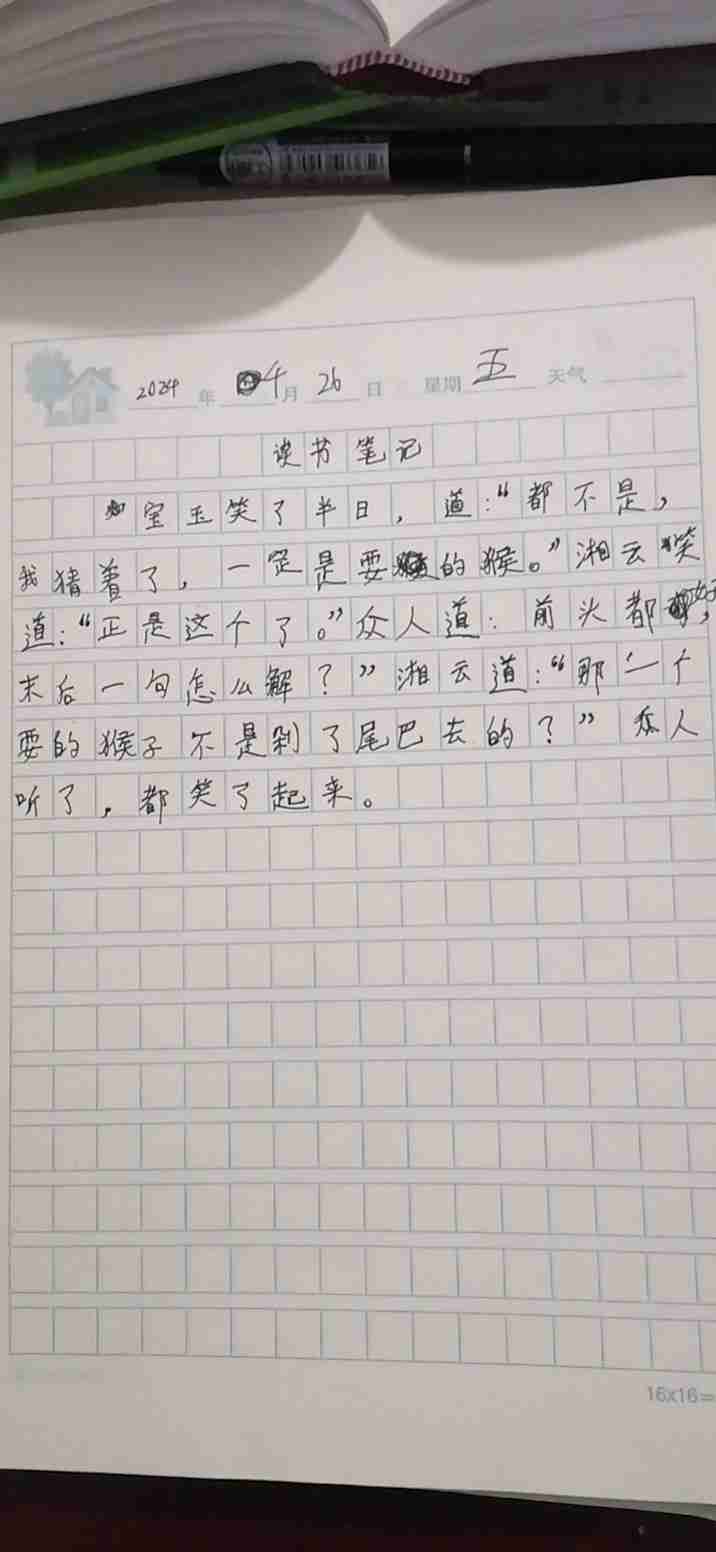 2024年04月26日 星期五 天气
读书笔记
宝玉笑了半日，道：“都不是，
我猜着了，一定是耍的猴。”湘云笑
道：“正是这个了。”众人道：前头都好，
末后一句怎么解？”湘云道：“那一个
耍的猴子不是剁了尾巴去的？”众人
听了，都笑了起来。
16x16=